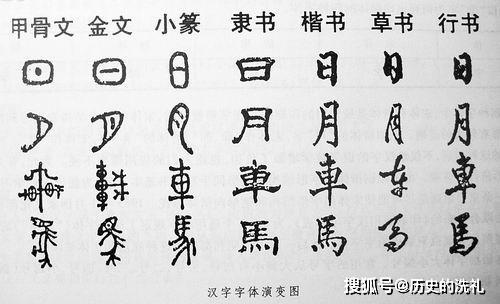 甲骨文 金文 小篆 隶书 楷书 草书 行书
日 日 日 日 日 日 日
月 月 月 月 月 月 月
車 車 車 車 車 车 車
馬 馬 馬 馬 馬 马 馬
汉字字体演变图
搜狐号@历史的洗礼